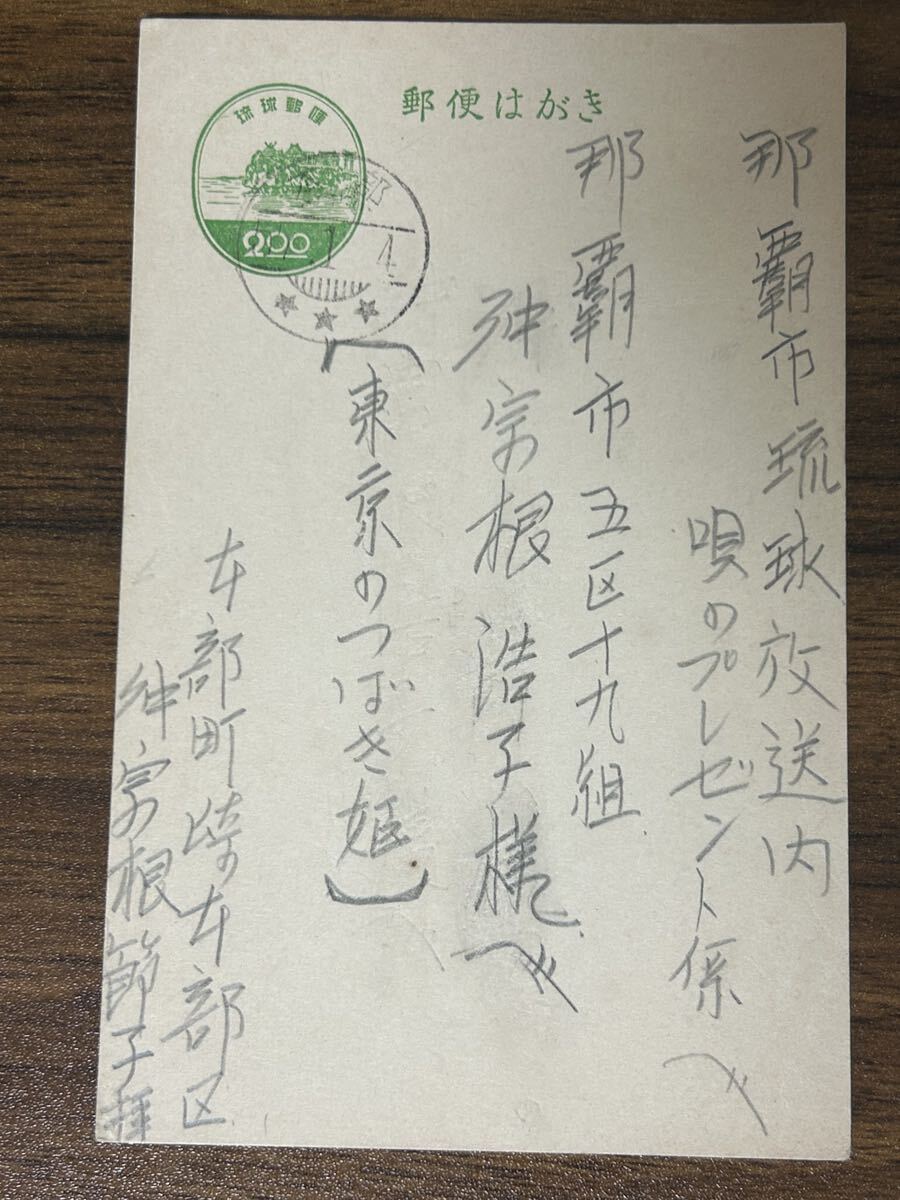 郵便はがき
琉球郵便
2.00
那覇市琉球放送内
唄のプレゼント係へ
那覇市五区十九組
沖宗根浩子様へ
〔東京のつばき姫〕
本部町崎本部区
沖宗根節子拝